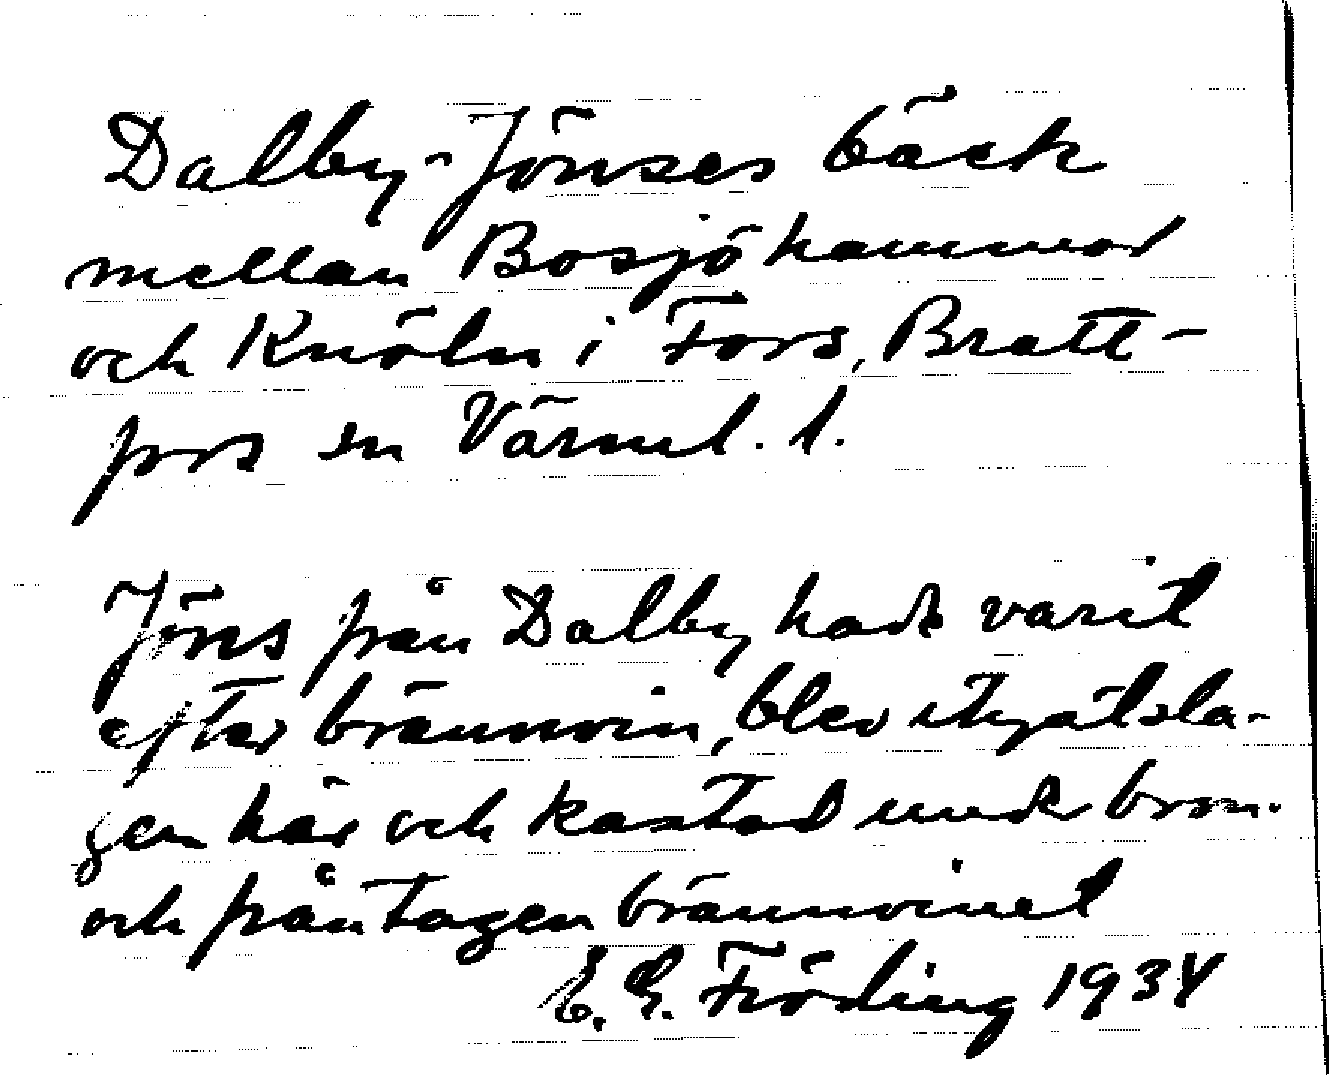 Dalby-Jönses bäck
mellan Bosjöhammar
och Knöln i Fors, Bratt-
fors sn Värml. l.
Jöns från Dalby hade varit
efter brännvin, blev ihjälsla-
gen här och kastad under bron.
och fråntagen brännvinet
E. G. Fröding 1934